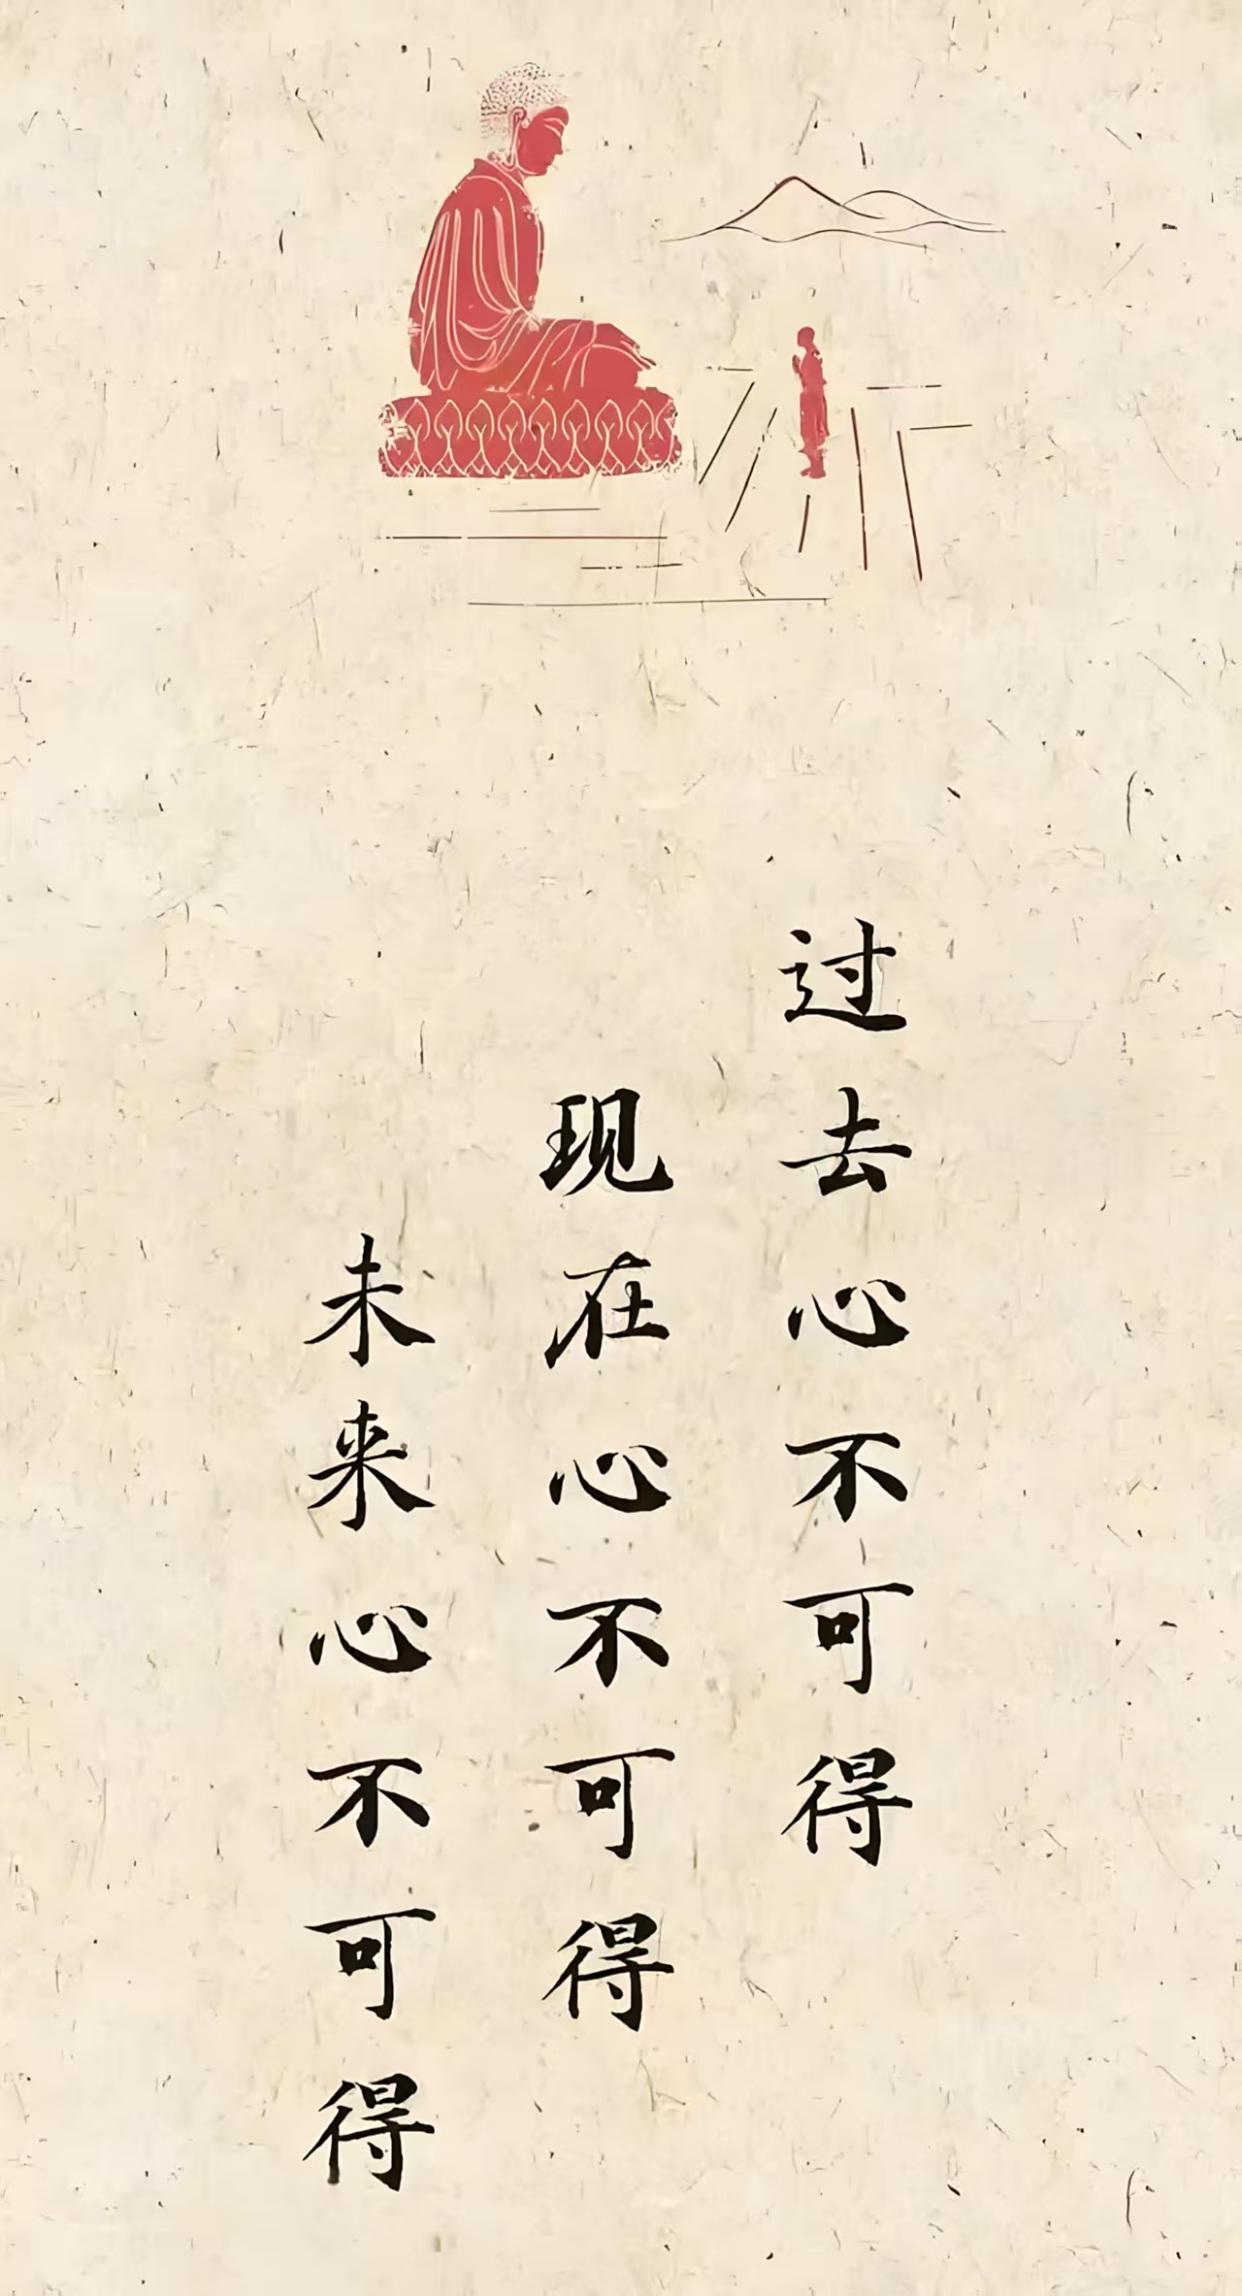 过去心不可得
现在心不可得
未来心不可得